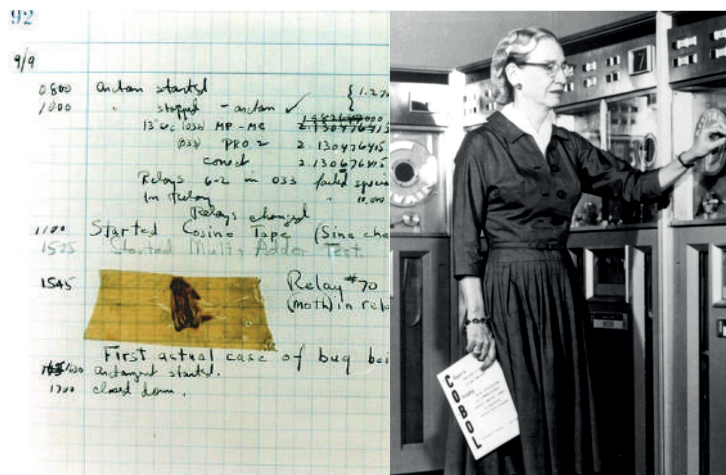 92
9/9
0800 Antan started
1000 " stopped - antan ✓ { 1.27
13"uc (032) MP - MC 2.130476415
(033) PRO 2 2.130476415
conect 2.130676415
Relays 6-2 in 033 failed
In Relay
Relays changed
1100 Started Cosine Tape (Sine che
1525 Started Mult+ Adder Test.
1545 Relay #70
(moth) in rel
First actual case of bug bei
1630 antangent started.
1700 closed down.
COBOL